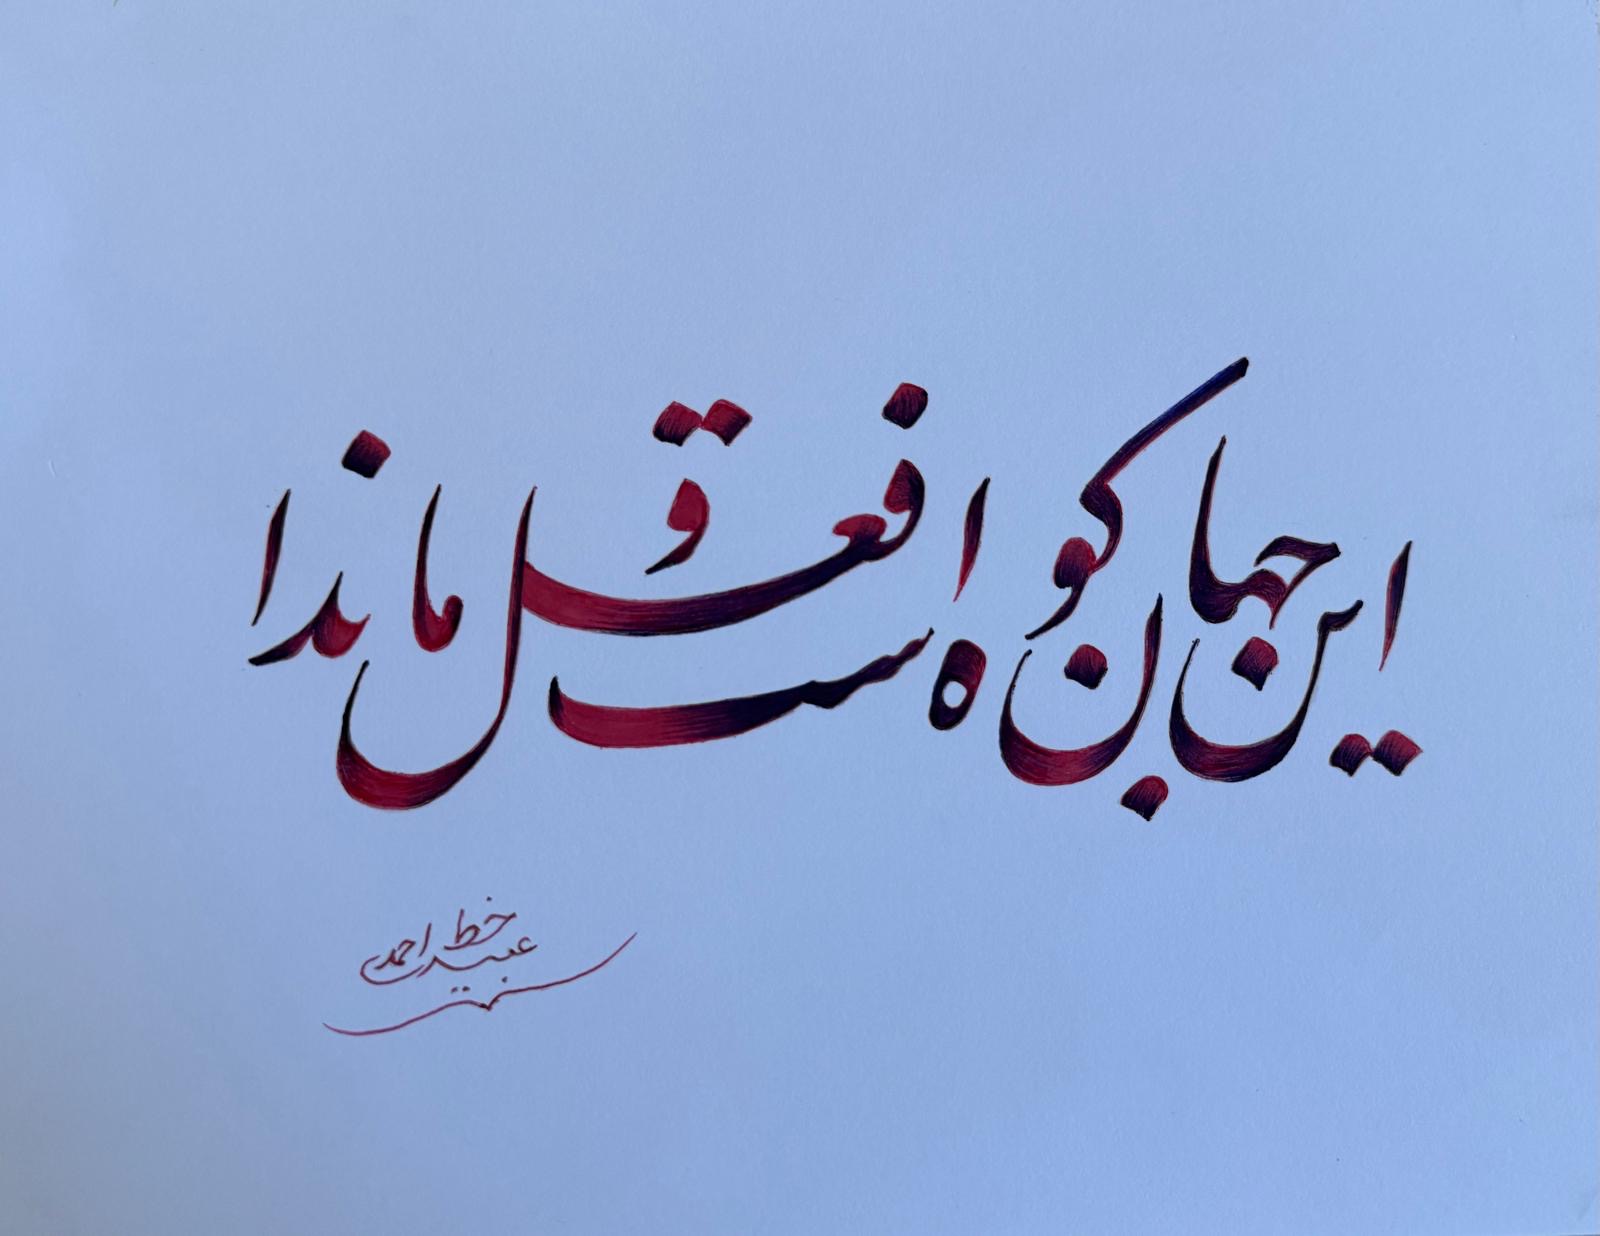 این جهان کوه است و فعل ما ندا
خط عبید احمدی